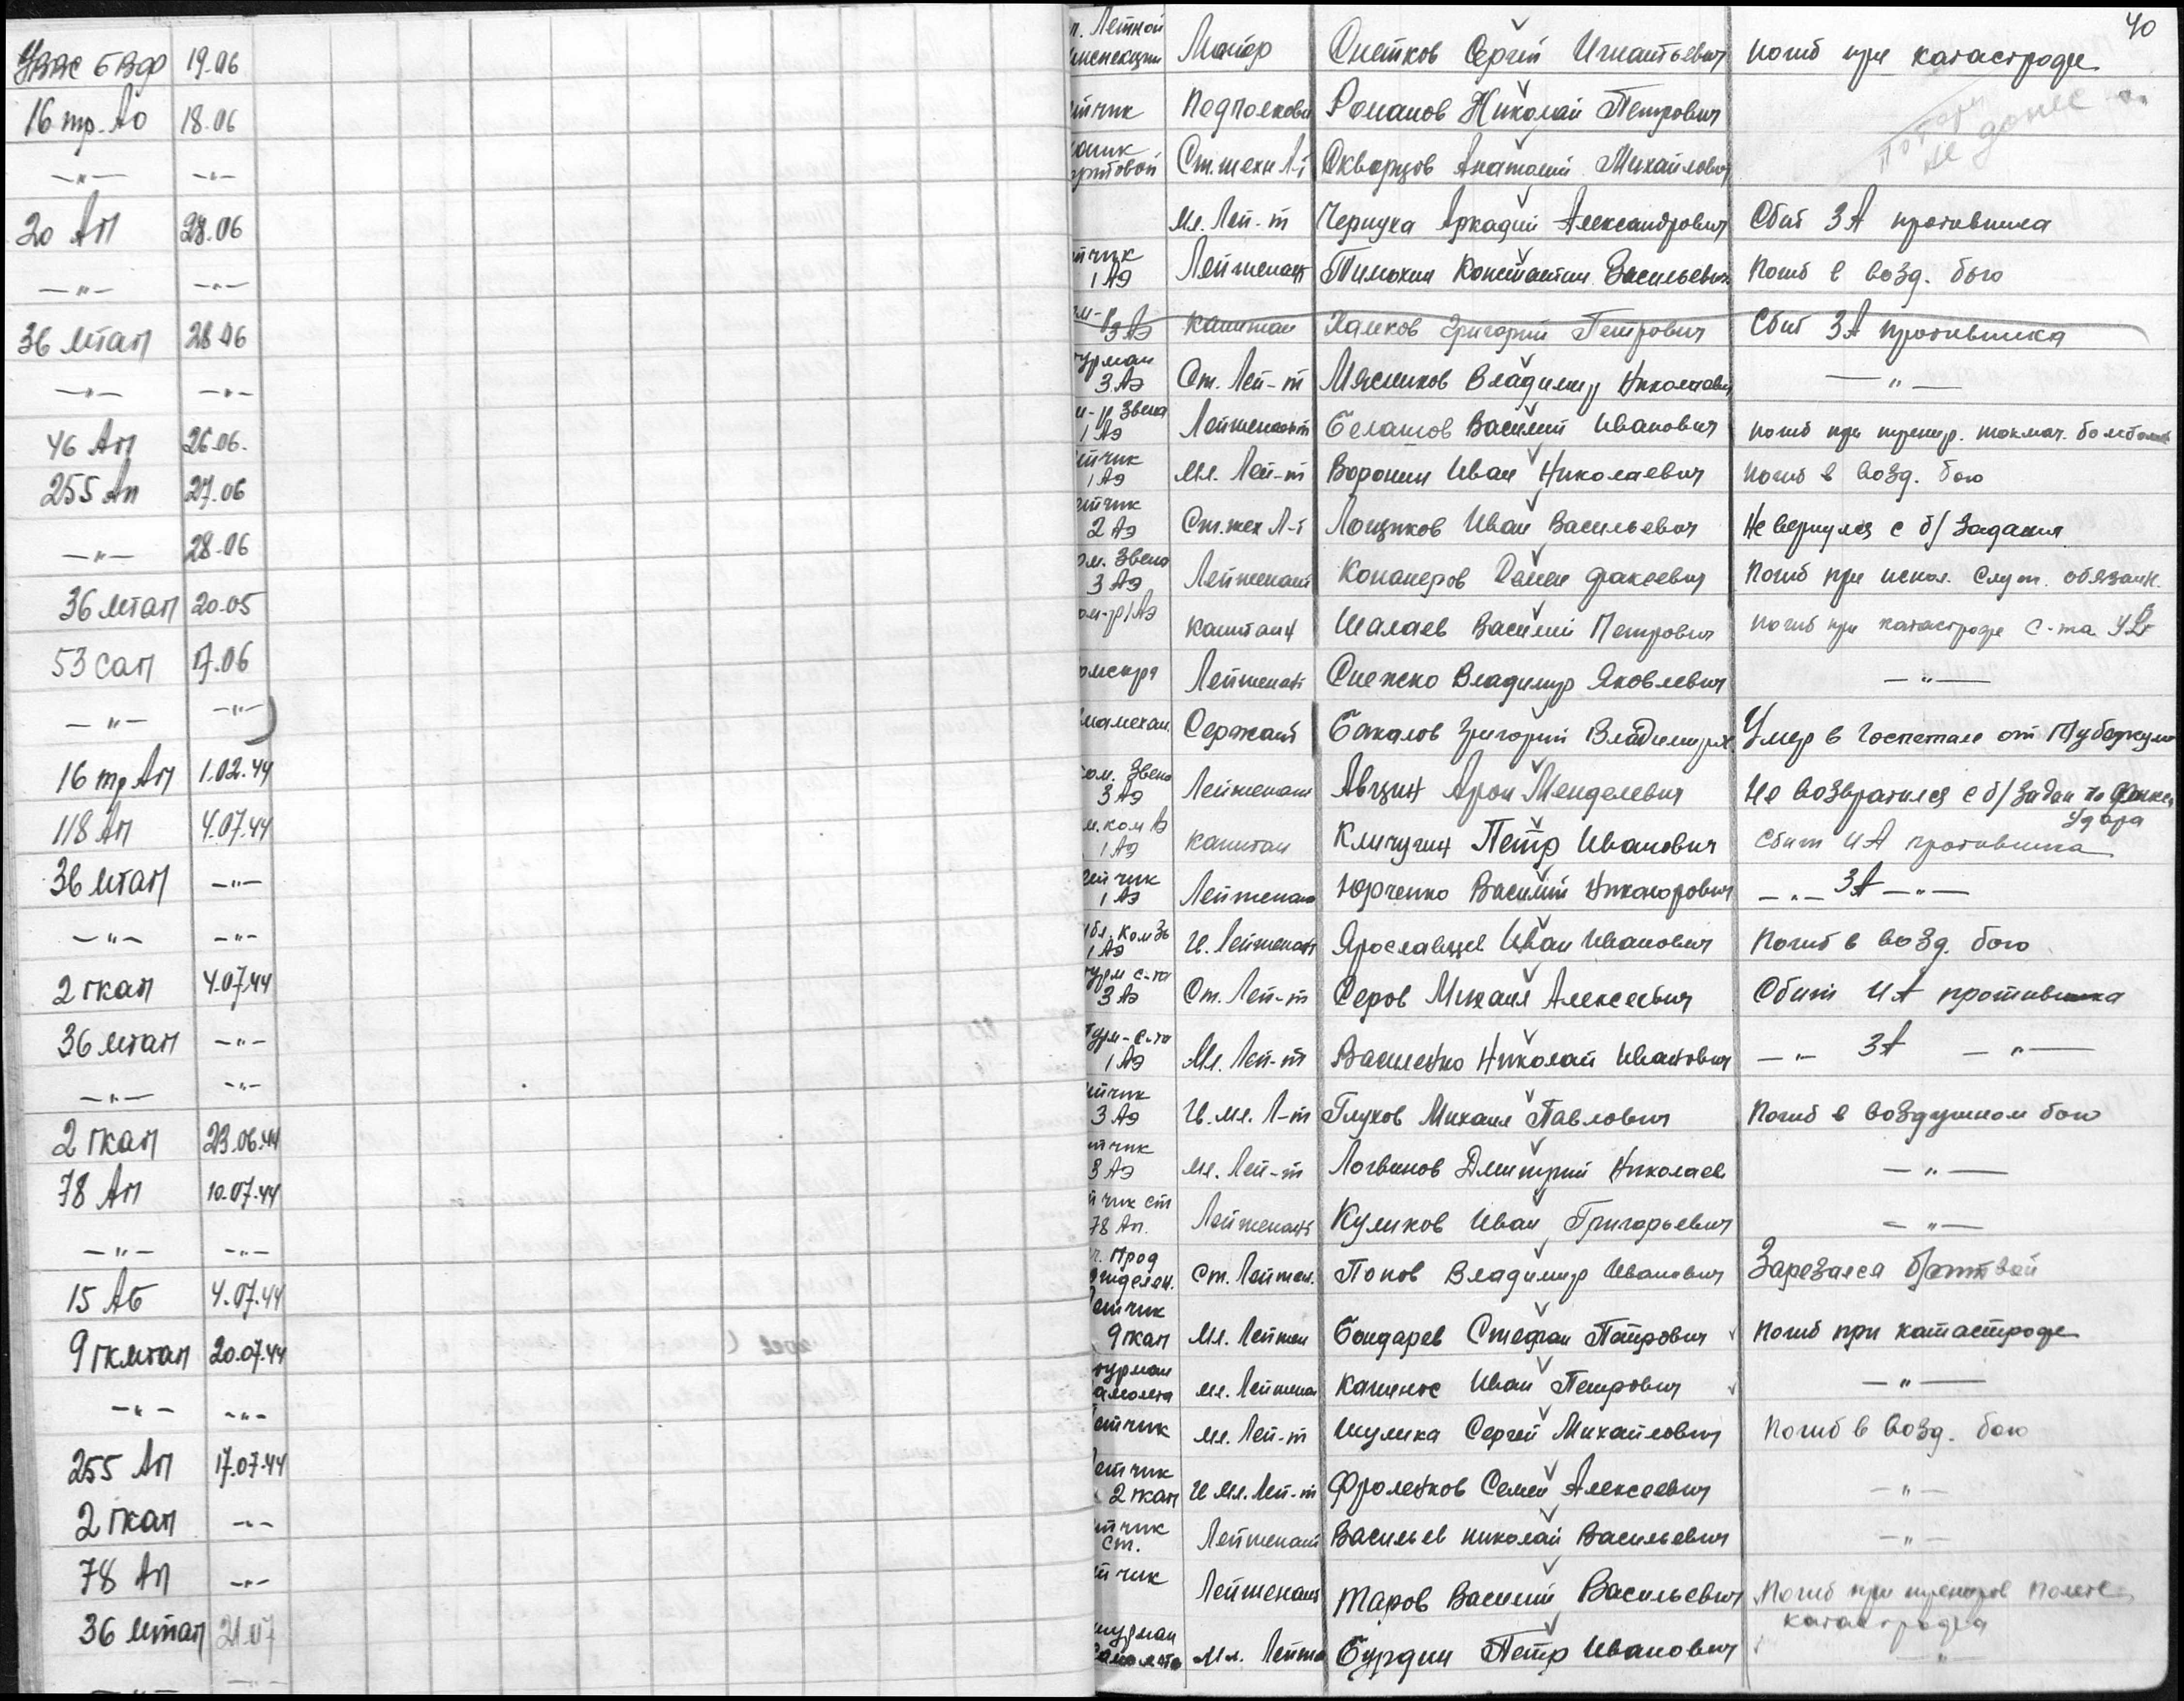 40
УВВС БВФ 19.06
16 тр. АО 18.06
—"— —"—
20 АП 28.06
—"— —"—
36 мтап 28.06
—"— —"—
46 Ап 26.06.
255 Ап 27.06
—"— 28.06
36 мтап 20.05
53 сап 17.06
—"— —"—
16 тр АП 1.02.44
118 Ап 4.07.44
36 мтап —"—
—"— —"—
2 гкап 4.07.44
36 мтап —"—
—"— —"—
2 гкап 23.06.44
78 Ап 10.07.44
—"— —"—
15 АБ 4.07.44
9 гкмтап 20.07.44
—"— —"—
255 Ап 17.07.44
2 гкап —"—
78 Ап —"—
36 мтап 21.07
—"—
п. Летной
инспекции Майор Снетков Сергей Игнатьевич погиб при катастрофе
тчик Подполковн Романов Николай Петрович
Ст. техн Л-т Скворцов Анатолий Михайлович не донес
Мл. Лей-т Чернуха Аркадий Александрович Сбит ЗА противника
тчик
1 АЭ Лейтенант Тимохин Константин Васильевич Погиб в возд. бою
3 АЭ капитан Халков Григорий Петрович Сбит ЗА противника
урман
3 АЭ Ст. Лей-т Мясников Владимир Николаевич —"—
Звена
1 АЭ Лейтенант Белашов Василий Иванович погиб при тренир.
тчик
1 АЭ Мл. Лей-т Воронин Иван Николаевич погиб в возд. бою
тчик
2 АЭ Ст. тех Л-т Лощиков Иван Васильевич Не вернулся с б/задания
ом. Звена
3 АЭ Лейтенант Семен погиб при испол. служ. обязанн.
ом-р 1 Аэ капитан Шалаев Василий Петрович погиб при катастрофе с-та
Лейтенант Снежко Владимир Яковлевич —"—
иамехан. Сержант Бакалов Григорий Владимирович Умер в госпитале от туберкул
ом. Звена
3 АЭ Лейтенант Авцин Арон Менделевич Не возвратился с б/задан
удара
1 АЭ капитан Кличугин Петр Иванович Сбит ИА противника
тчик
1 АЭ Лейтенант Юрченко Василий Никанорович —"— ЗА —"—
1 АЭ Лейтенант Ярославцев Иван Иванович Погиб в возд. бою
урм с-та
3 Аэ Ст. Лей-т Серов Михаил Алексеевич Сбит ИА противника
турм-с-та
1 Аэ Мл. Лей-т Василенко Николай Иванович —"— ЗА —"—
тчик
3 Аэ Мл. Л-т Глухов Михаил Павлович Погиб в воздушном бою
тчик
3 АЭ Мл. Лей-т Логвинов Дмитрий Николаев —"—
тчик ст
78 Ап. Лейтенант Куликов Иван Григорьевич —"—
прод
отделен. Ст. Лейтен. Попов Владимир Иванович Зарезался бритвой
летчик
9 гкап Мл. Лейтен Бондарев Стефан Петрович Погиб при катастрофе
турман
самолета Мл. Лейтенан Кашинос Иван Петрович —"—
летчик Мл. Лей-т Шулика Сергей Михайлович Погиб в возд. бою
летчик
2 гкап Мл. Лей-т Фроленков Семен Алексеевич —"—
тчик
ст. Лейтенант Васильев Николай Васильевич —"—
тчик Лейтенант Таров Василий Васильевич Погиб при трениров полете
катастрофа
штурман
самолета Мл. Лейтен Бурдин Петр Иванович —"—